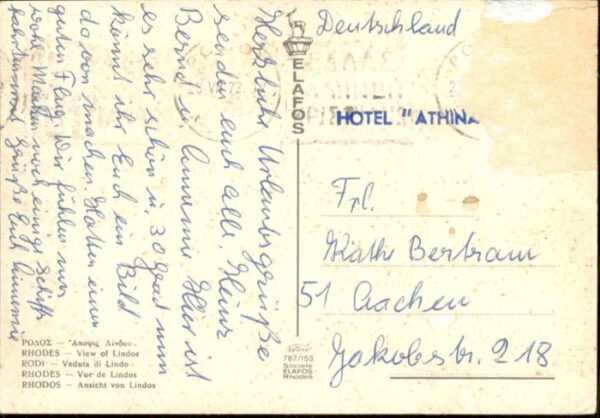 Deutschland
HOTEL "ATHINA
ELAFOS
Herzliche Urlaubsgrüße
senden euch alle, Heinz
Bernd u. Annemie Hier ist
es sehr schön u. 30 grad nun
könnt ihr Euch ein Bild
davon machen. Hatten einen
guten Flug. Wir fühlen uns
wohl. Machen noch einige Schiffs
Grüße Annemie
Frl.
Käthe Bertram
51 Aachen
Jakobstr. 218
25 VII 72
ΕΛΛΑΣ
ΡΟΔΟΣ — Ἄποψις Λίνδου.
RHODES — View of Lindos
RODI — Veduta di Lindo
RHODES — Vue de Lindos
RHODOS — Ansicht von Lindos
787/153
Societe
ELAFOS
Rhodes